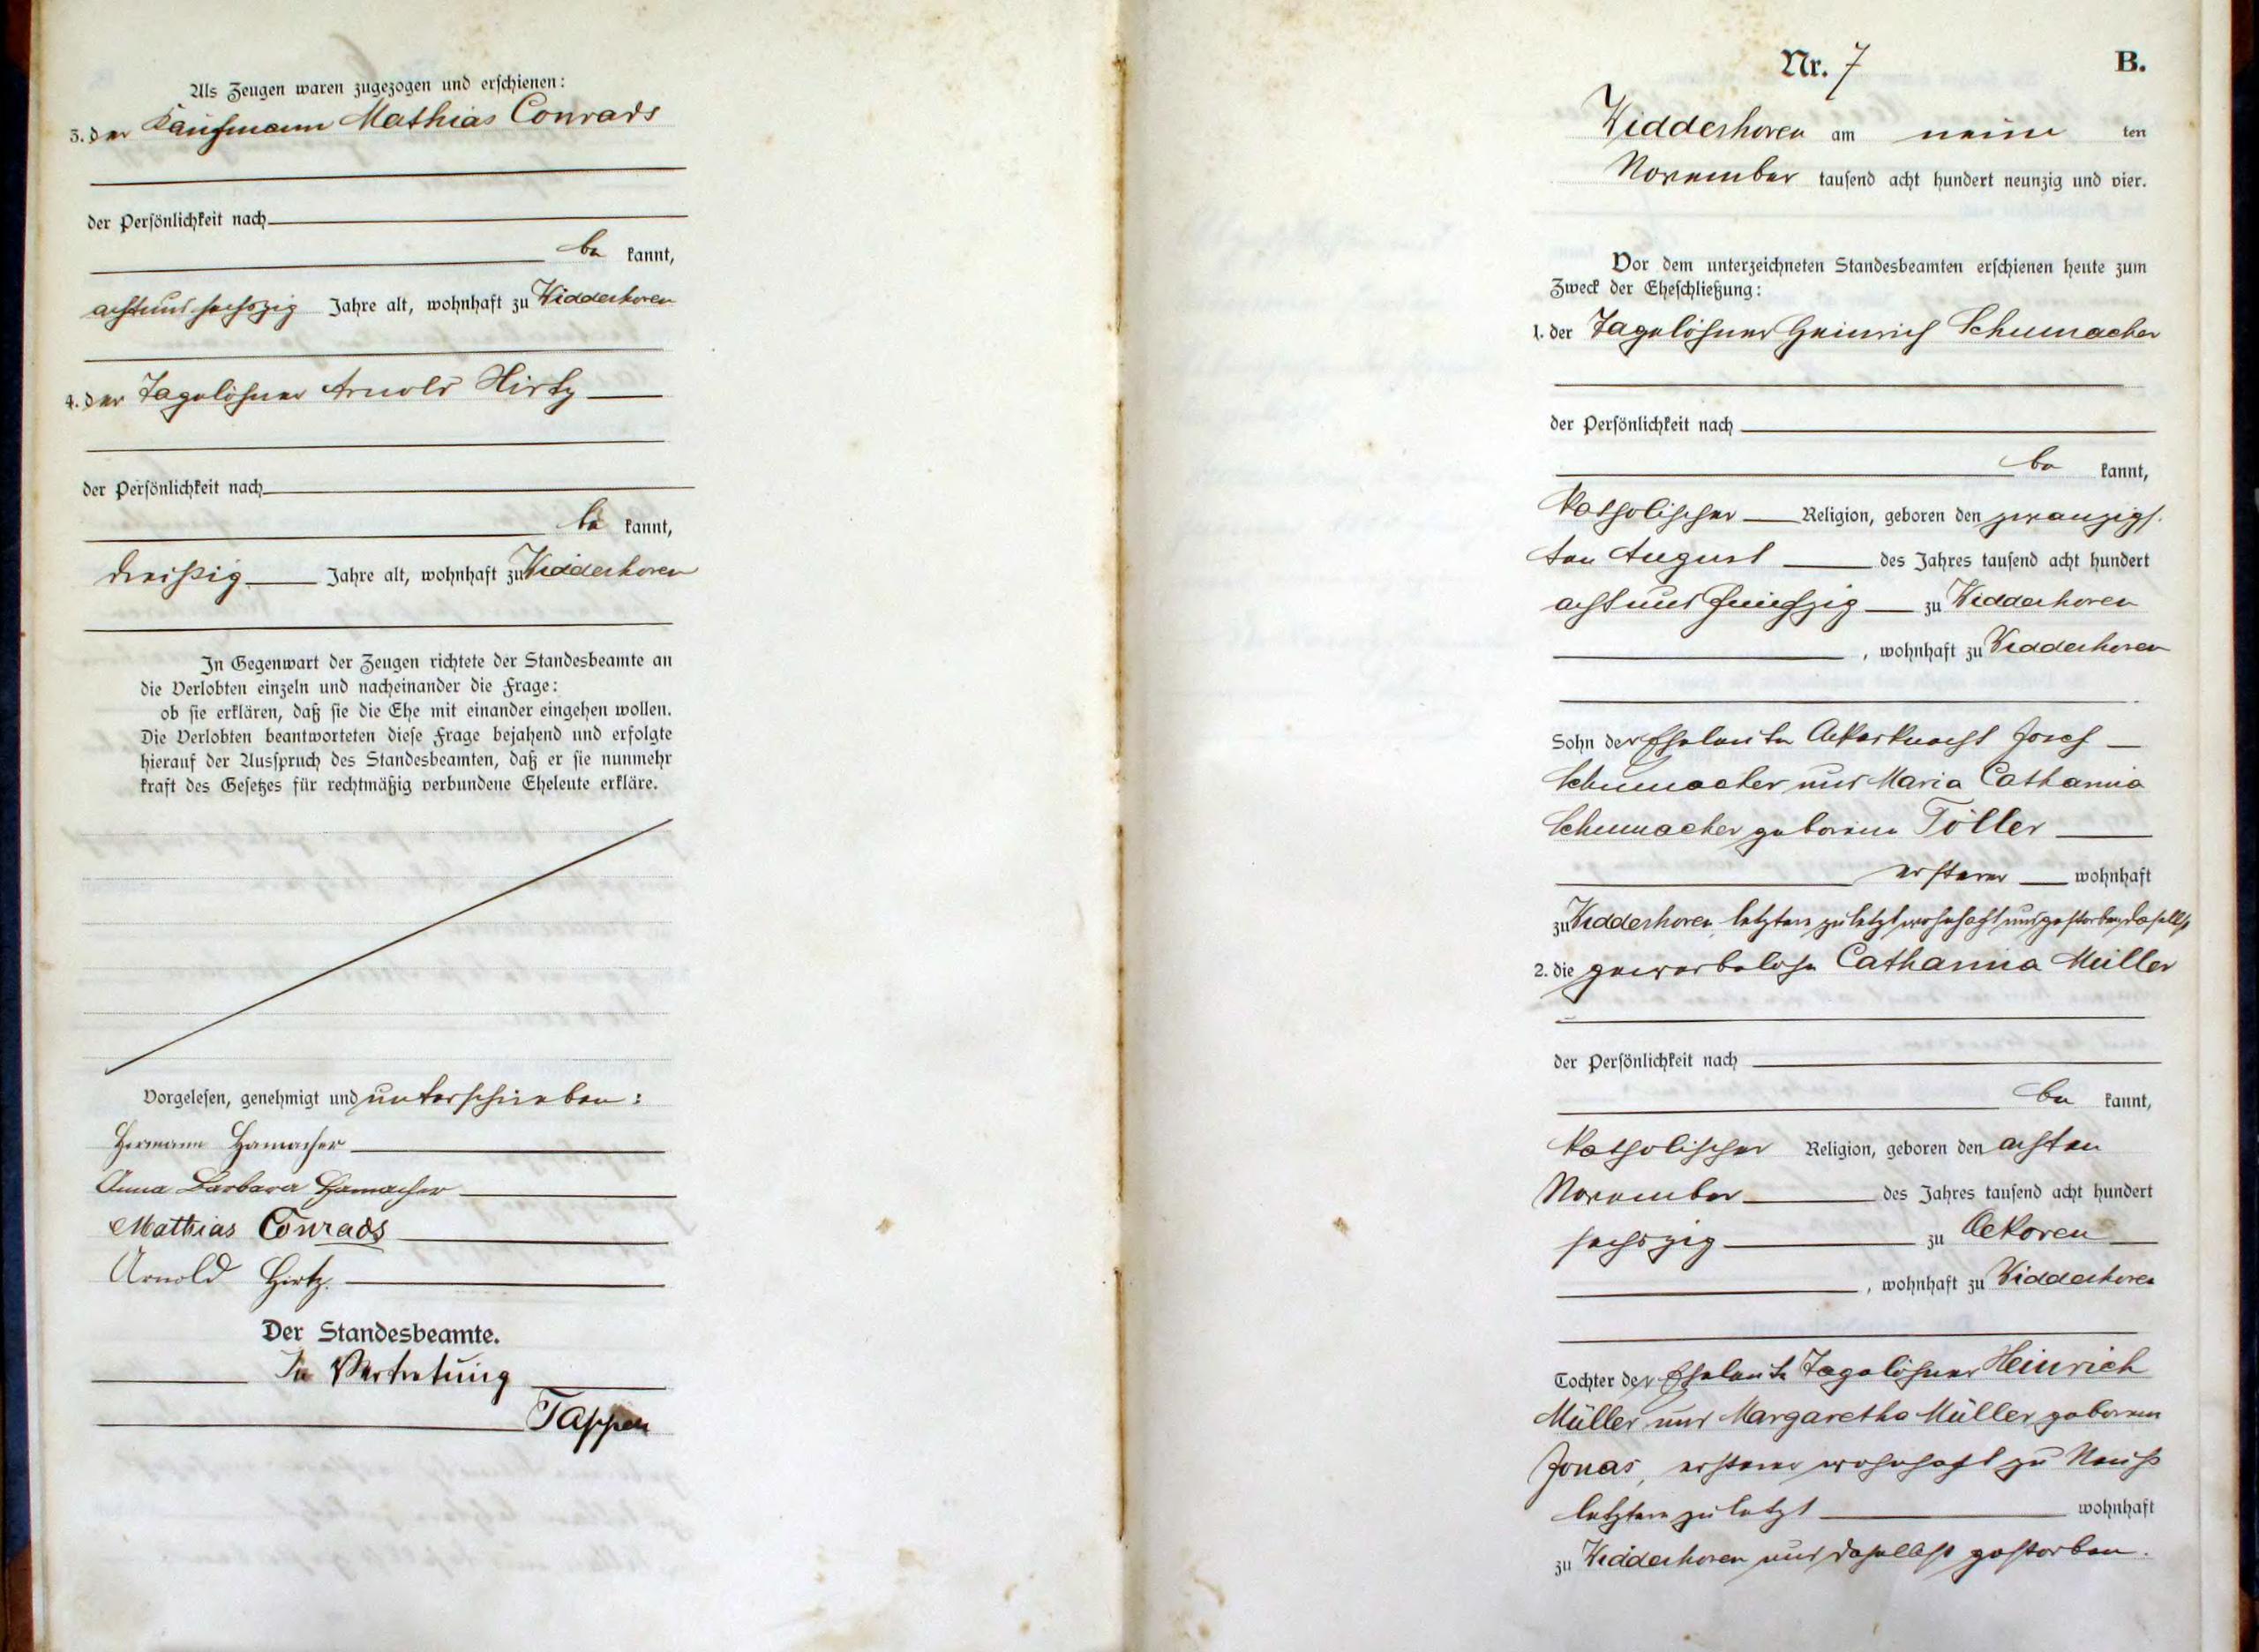 Als Zeugen waren zugezogen und erschienen:
3. der Kaufmann Mathias Conrads
der Persönlichkeit nach
be kannt,
achtundsechszig Jahre alt, wohnhaft zu Widdeshoven
4. der Tagelöhner Arnold Hirtz
der Persönlichkeit nach
be kannt,
dreißig Jahre alt, wohnhaft zu Widdeshoven
In Gegenwart der Zeugen richtete der Standesbeamte an
die Verlobten einzeln und nacheinander die Frage:
ob sie erklären, daß sie die Ehe mit einander eingehen wollen.
Die Verlobten beantworteten diese Frage bejahend und erfolgte
hierauf der Ausspruch des Standesbeamten, daß er sie nunmehr
kraft des Gesetzes für rechtmäßig verbundene Eheleute erkläre.
Vorgelesen, genehmigt und unterschrieben:
Hermann Hamacher
Anna Barbara Hamacher
Mathias Conrads
Arnold Hirtz.
Der Standesbeamte.
In Vertretung
Tappen
Nr. 7 B.
Widdeshoven am neun ten
November tausend acht hundert neunzig und vier.
Vor dem unterzeichneten Standesbeamten erschienen heute zum
Zweck der Eheschließung:
1. der Tagelöhner Heinrich Schumacher
der Persönlichkeit nach
be kannt,
katholischer Religion, geboren den zwanzigs-
ten August des Jahres tausend acht hundert
achtundfünfzig zu Widdeshoven
, wohnhaft zu Widdeshoven
Sohn der Eheleute Ackerknecht Josef
Schumacher und Maria Catharina
Schumacher geborene Töller
ersterer wohnhaft
zu Widdeshoven letztere zuletzt wohnhaft und gestorben daselbst
2. die gewerbelose Catharina Müller
der Persönlichkeit nach
be kannt,
katholischer Religion, geboren den achten
November des Jahres tausend acht hundert
sechszig zu Oekoven
, wohnhaft zu Widdeshoven
Tochter der Eheleute Tagelöhner Heinrich
Müller und Margaretha Müller geborene
Jonas, ersterer wohnhaft zu Neuß
letztere zuletzt wohnhaft
zu Widdeshoven und daselbst gestorben.